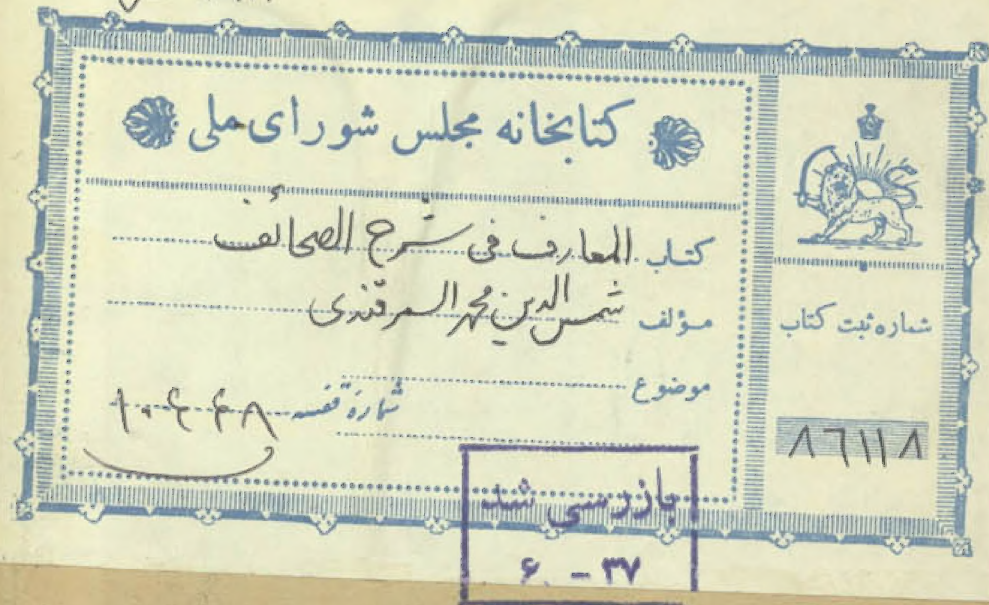 کتابخانه مجلس شورای ملی
کتاب المعارف فی شرح الصحائف
مؤلف شمس الدین محمد السمرقندی
موضوع
شماره قفسه ۱۰۴۴۸
شماره ثبت کتاب
۸۶۱۱۸
بازرسی شد
۶ - ۳۷